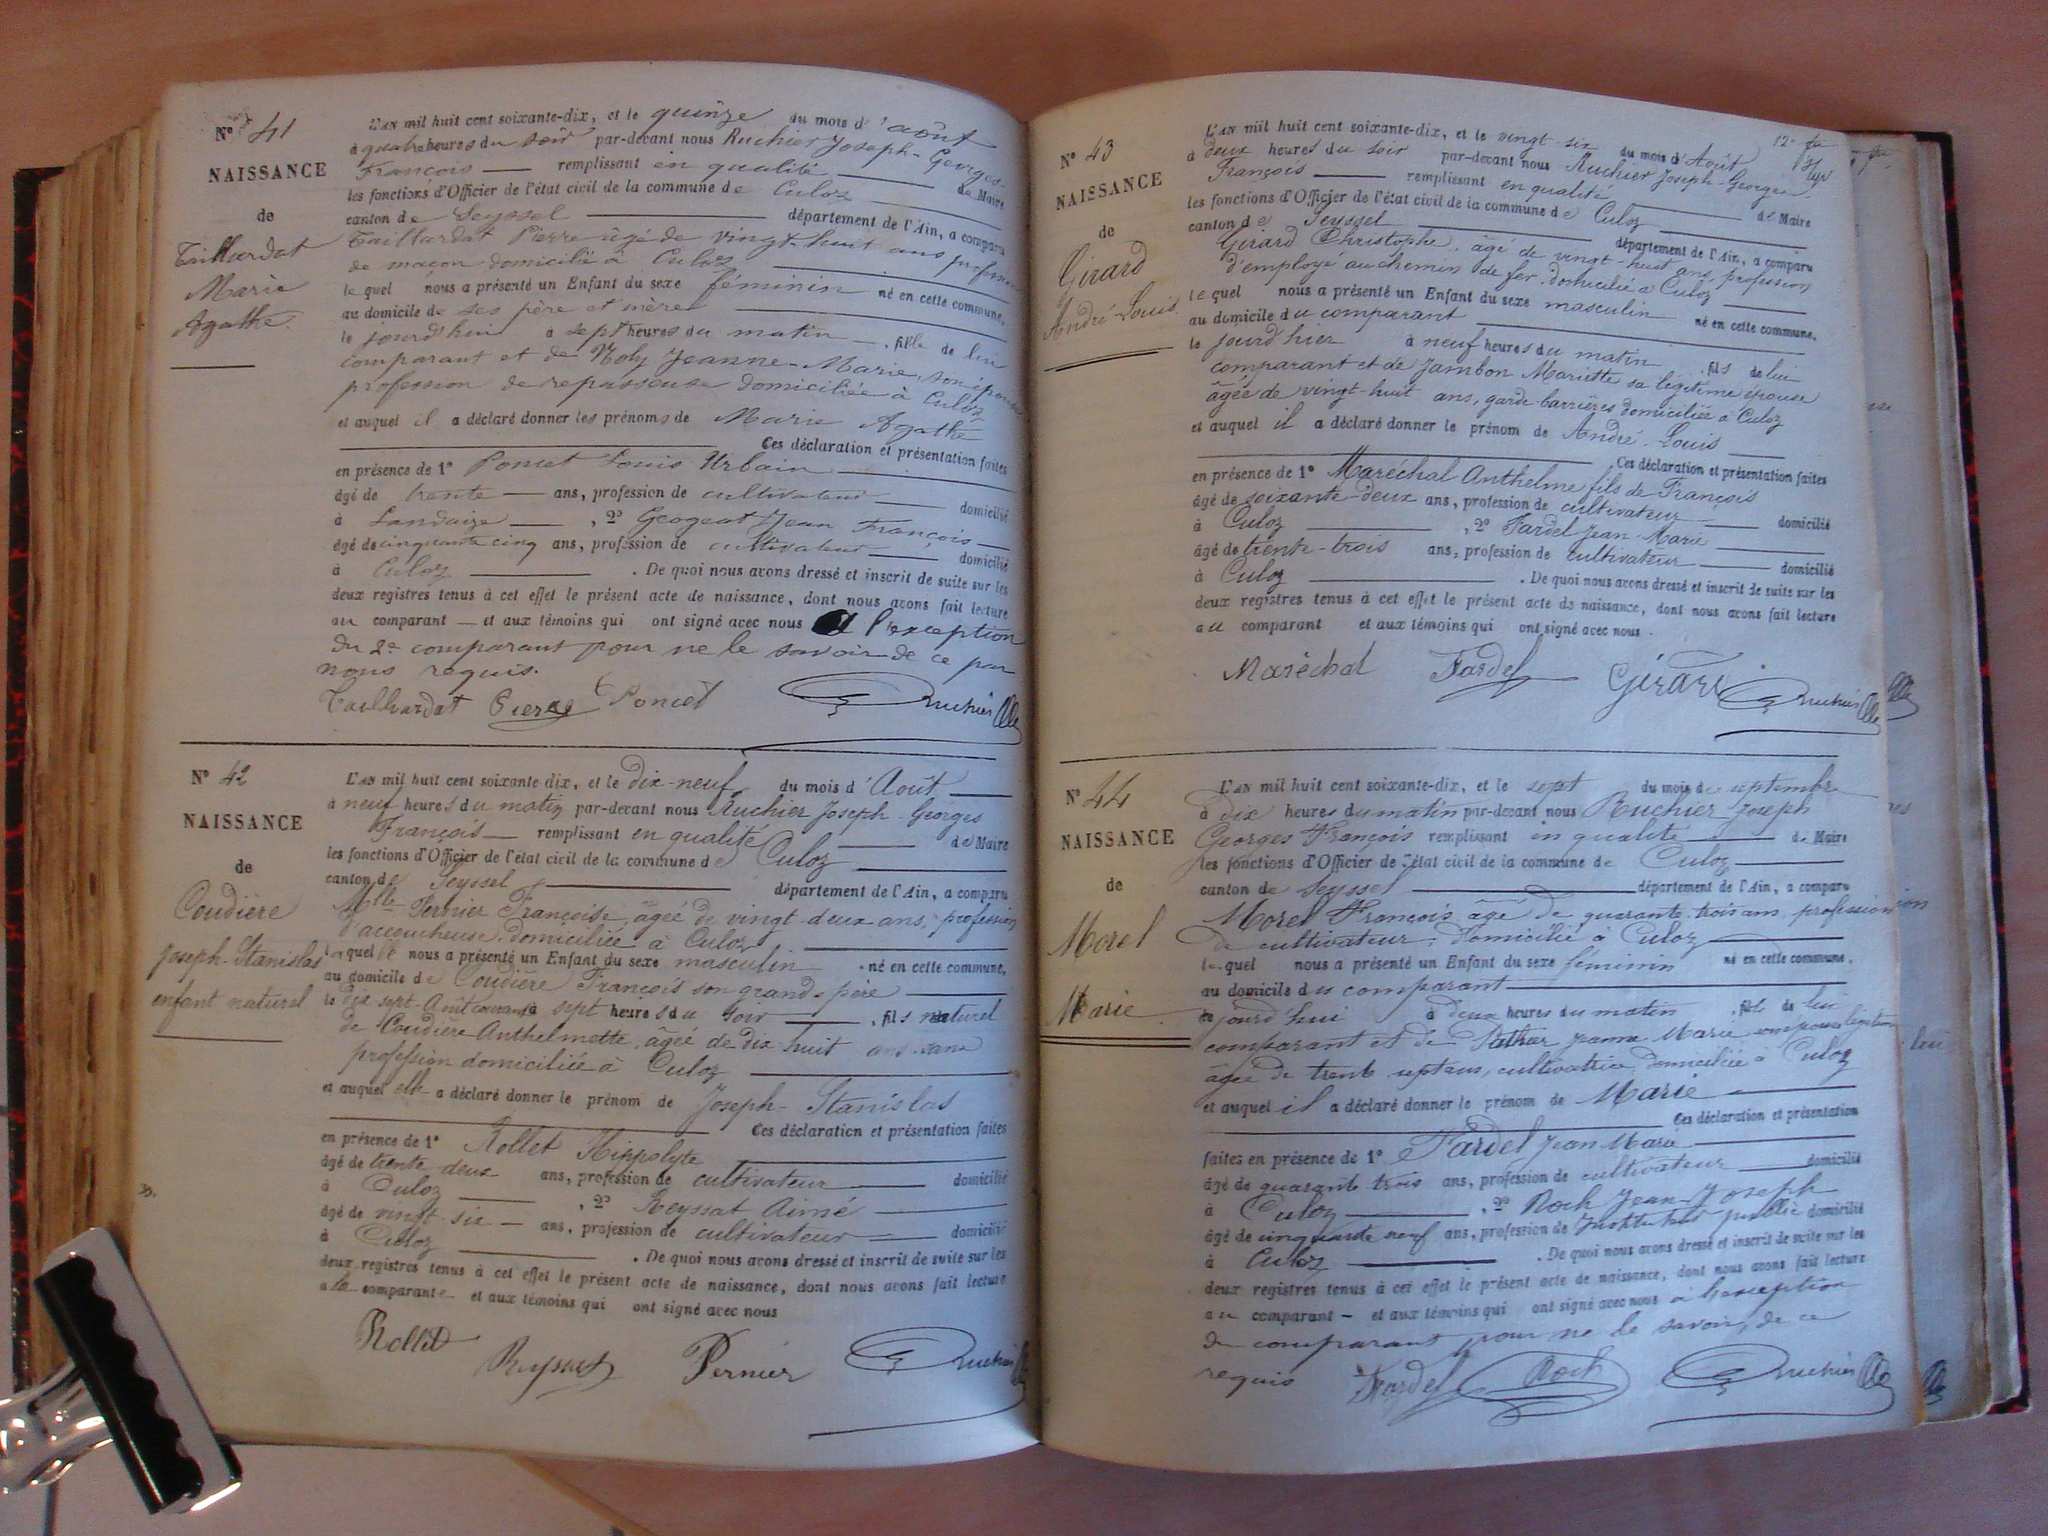 N° 41
NAISSANCE
de
Taillardat
Marie
Agathe
L'an mil huit cent soixante-dix, et le quinze du mois d'août
à quatre heures du soir par-devant nous Ruchier Joseph-Georges-
François remplissant en qualité de Maire
les fonctions d'Officier de l'état civil de la commune de Culoz
canton de Seyssel département de l'Ain, a comparu
Taillardat Pierre âgé de vingt-huit ans profession
de maçon domicilié à Culoz
lequel nous a présenté un Enfant du sexe féminin né en cette commune,
au domicile de ses père et mère
le jourd'hui à sept heures du matin, fille de lui
comparant et de Jeanne-Marie, son épouse
profession de repasseuse domiciliée à Culoz
et auquel il a déclaré donner les prénoms de Marie Agathe
Ces déclaration et présentation faites
en présence de 1° Poncet Louis Urbain
âgé de trente ans, profession de cultivateur domicilié
à Landaize, 2° Georgeot Jean François
âgé de cinquante cinq ans, profession de cultivateur domicilié
à Culoz. De quoi nous avons dressé et inscrit de suite sur les
deux registres tenus à cet effet le présent acte de naissance, dont nous avons fait lecture
au comparant et aux témoins qui ont signé avec nous à l'exception
du 2e comparant pour ne le savoir de ce par
nous requis.
Taillardat Pierre Poncet Ruchier
N° 42
NAISSANCE
de
Coudière
Joseph-Stanislas
enfant naturel
L'an mil huit cent soixante-dix, et le dix-neuf du mois d'Août
à neuf heures du matin par-devant nous Ruchier Joseph-Georges
François remplissant en qualité de Maire
les fonctions d'Officier de l'état civil de la commune de Culoz
canton de Seyssel département de l'Ain, a comparu
Mlle Pernier Françoise, âgée de vingt-deux ans, profession
d'accoucheuse, domiciliée à Culoz
laquelle nous a présenté un Enfant du sexe masculin né en cette commune,
au domicile de Coudière François son grand-père
le dix sept Août courant à sept heures du soir, fils naturel
de Coudière Anthelmette, âgée de dix-huit ans sans
profession domiciliée à Culoz
et auquel elle a déclaré donner le prénom de Joseph-Stanislas
Ces déclaration et présentation faites
en présence de 1° Rollet Hippolyte
âgé de trente-deux ans, profession de cultivateur domicilié
à Culoz, 2° Reyssat Aimé
âgé de vingt-six ans, profession de cultivateur domicilié
à Culoz. De quoi nous avons dressé et inscrit de suite sur les
deux registres tenus à cet effet le présent acte de naissance, dont nous avons fait lecture
à la comparante et aux témoins qui ont signé avec nous
Rollet Reyssat Pernier Ruchier
N° 43
NAISSANCE
de
Girard
André-Louis
L'an mil huit cent soixante-dix, et le vingt-six du mois d'Août
à deux heures du soir par-devant nous Ruchier Joseph-Georges
François remplissant en qualité de Maire
les fonctions d'Officier de l'état civil de la commune de Culoz
canton de Seyssel département de l'Ain, a comparu
Girard Christophe, âgé de vingt-huit ans, profession
d'employé au chemin de fer, domicilié à Culoz
lequel nous a présenté un Enfant du sexe masculin né en cette commune,
au domicile du comparant
le jourd'hier à neuf heures du matin, fils de lui
comparant et de Jambon Mariette sa légitime épouse
âgée de vingt-huit ans, garde-barrières domiciliée à Culoz
et auquel il a déclaré donner le prénom de André-Louis
Ces déclaration et présentation faites
en présence de 1° Maréchal Anthelme fils de François
âgé de soixante-deux ans, profession de cultivateur domicilié
à Culoz, 2° Fardel Jean-Marie
âgé de trente-trois ans, profession de cultivateur domicilié
à Culoz. De quoi nous avons dressé et inscrit de suite sur les
deux registres tenus à cet effet le présent acte de naissance, dont nous avons fait lecture
au comparant et aux témoins qui ont signé avec nous.
Maréchal Fardel Girard Ruchier
N° 44
NAISSANCE
de
Morel
Marie
L'an mil huit cent soixante-dix, et le sept du mois de septembre
à dix heures du matin par-devant nous Ruchier Joseph
Georges François remplissant en qualité de Maire
les fonctions d'Officier de l'état civil de la commune de Culoz
canton de Seyssel département de l'Ain, a comparu
Morel François âgé de quarante-trois ans, profession
de cultivateur, domicilié à Culoz
lequel nous a présenté un Enfant du sexe féminin né en cette commune,
au domicile du comparant
le jourd'hui à deux heures du matin, fille de lui
comparant et de Jeanne Marie son épouse légitime
âgée de trente sept ans, cultivatrice, domiciliée à Culoz
et auquel il a déclaré donner le prénom de Marie
Ces déclaration et présentation
faites en présence de 1° Fardel Jean Marie
âgé de quarante-trois ans, profession de cultivateur domicilié
à Culoz, 2° Roch Jean-Joseph
âgé de cinquante neuf ans, profession de Instituteur public domicilié
à Culoz. De quoi nous avons dressé et inscrit de suite sur les
deux registres tenus à cet effet le présent acte de naissance, dont nous avons fait lecture
au comparant et aux témoins qui ont signé avec nous à l'exception
du comparant pour ne le savoir, de ce
requis Fardel Roch Ruchier